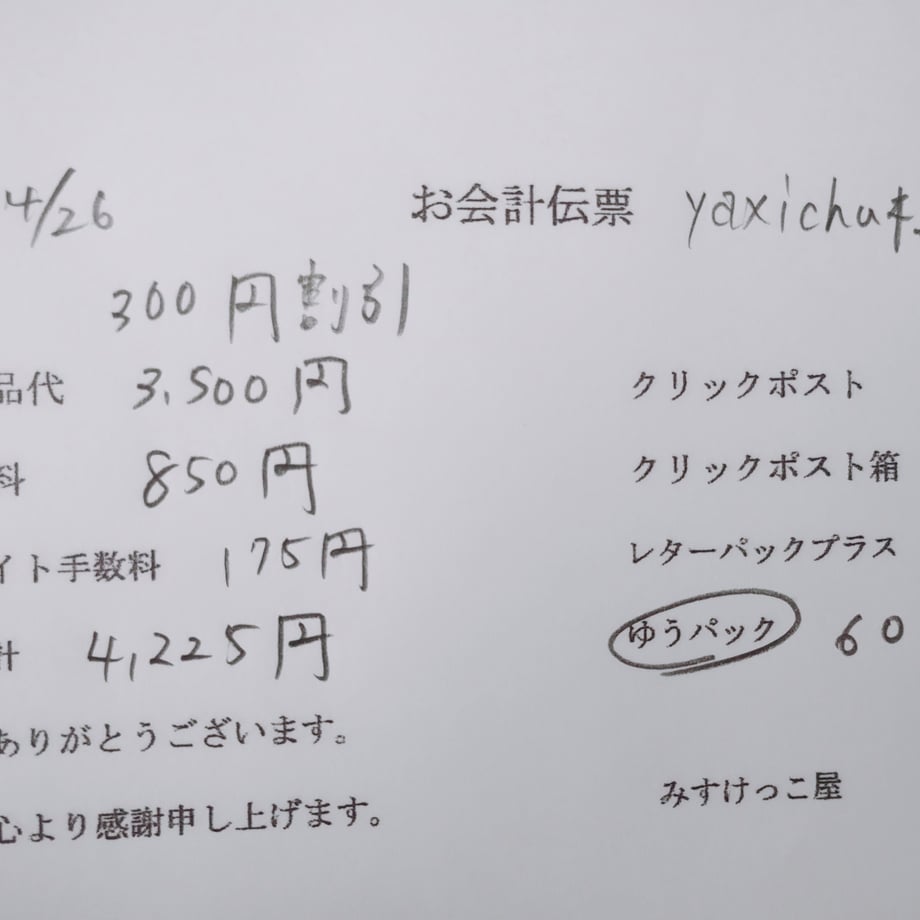 4/26 お会計伝票 yaxichu
300円割引
品代 3,500円 クリックポスト
料 850円 クリックポスト箱
イト手数料 175円 レターパックプラス
計 4,225円 ゆうパック 60
ありがとうございます。
心より感謝申し上げます。 みすけっこ屋